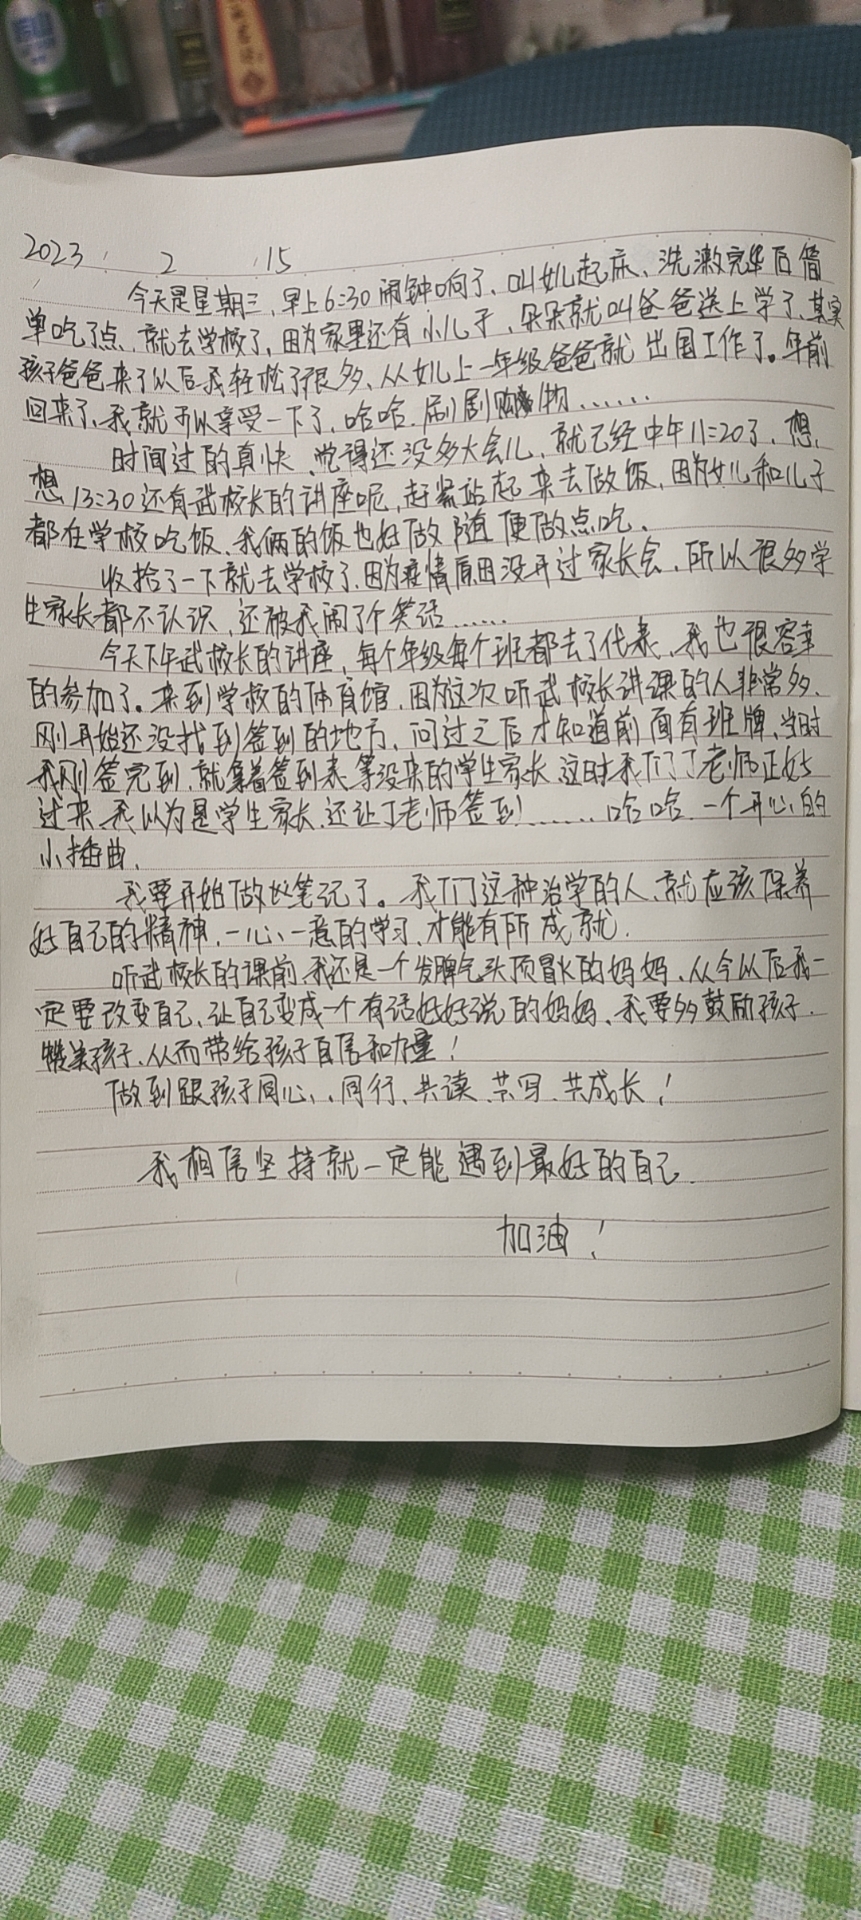 2023 2 15
今天是星期三,早上6:30闹钟响了,叫女儿起床、洗漱完毕后简
单吃了点,就去学校了,因为家里还有小儿子,朵朵就叫爸爸送上学了,其实
孩子爸爸来了以后我轻松了很多、从女儿上一年级爸爸就出国工作了。年前
回来了、我就可以享受一下了,哈哈.刷剧购物......
时间过的真快、觉得还没多大会儿、就已经中午11:20了、想,
想13:30还有武校长的讲座呢,赶紧站起来去做饭,因为女儿和儿子
都在学校吃饭、我俩的饭也好做随便做点吃、
收拾了一下就去学校了,因为疫情原因没开过家长会、所以很多学
生家长都不认识,还被我闹了个笑话......
今天下午武校长的讲座,每个年级每个班都去了代表、我也很容幸
的参加了。来到学校的体育馆,因为这次听武校长讲课的人非常多、
刚开始还没找到签到的地方、问过之后才知道前面有班牌、当时
我刚签完到、就拿着签到表等没来的学生家长、这时我们丁老师正好
过来、我以为是学生家长、还让丁老师签到......哈哈、一个开心的
小插曲、
我要开始做笔记了。我们这种治学的人、就应该保养
好自己的精神、一心、一意的学习、才能有所成就.
听武校长的课前、我还是一个发脾气头顶冒火的妈妈、从今以后我一
定要改变自己、让自己变成一个有话好好说的妈妈、我要多鼓励孩子.
赞美孩子、从而带给孩子自信和力量!
做到跟孩子同心、、同行、共读、共写、共成长!
我相信坚持就一定能遇到最好的自己.
加油!